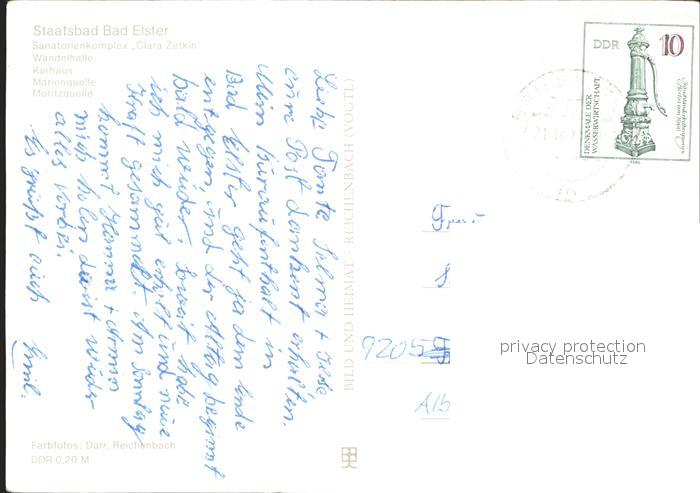 Staatsbad Bad Elster
Sanatorienkomplex „Clara Zetkin"
Wandelhalle
Kurhaus
Marienquelle
Moritzquelle
Liebe Tante Selma +
eure Post dankend erhalten.
Mein Kuraufenthalt in
Bad Elster geht ja dem Ende
entgegen, und der Alltag beginnt
bald wieder. Soweit habe
ich mich gut erholt und neue
Kraft gesammelt. Am Sonntag
kommt Hanni +
mich holen da ist wieder
alles vorbei.
Es grüßt euch
Farbfotos: Darr, Reichenbach
DDR 0,20 M
BILD UND HEIMAT REICHENBACH (VOGTL)
DDR 10
DENKMALE DER
WASSERWIRTSCHAFT
1986
9205
Alb
privacy protection
Datenschutz